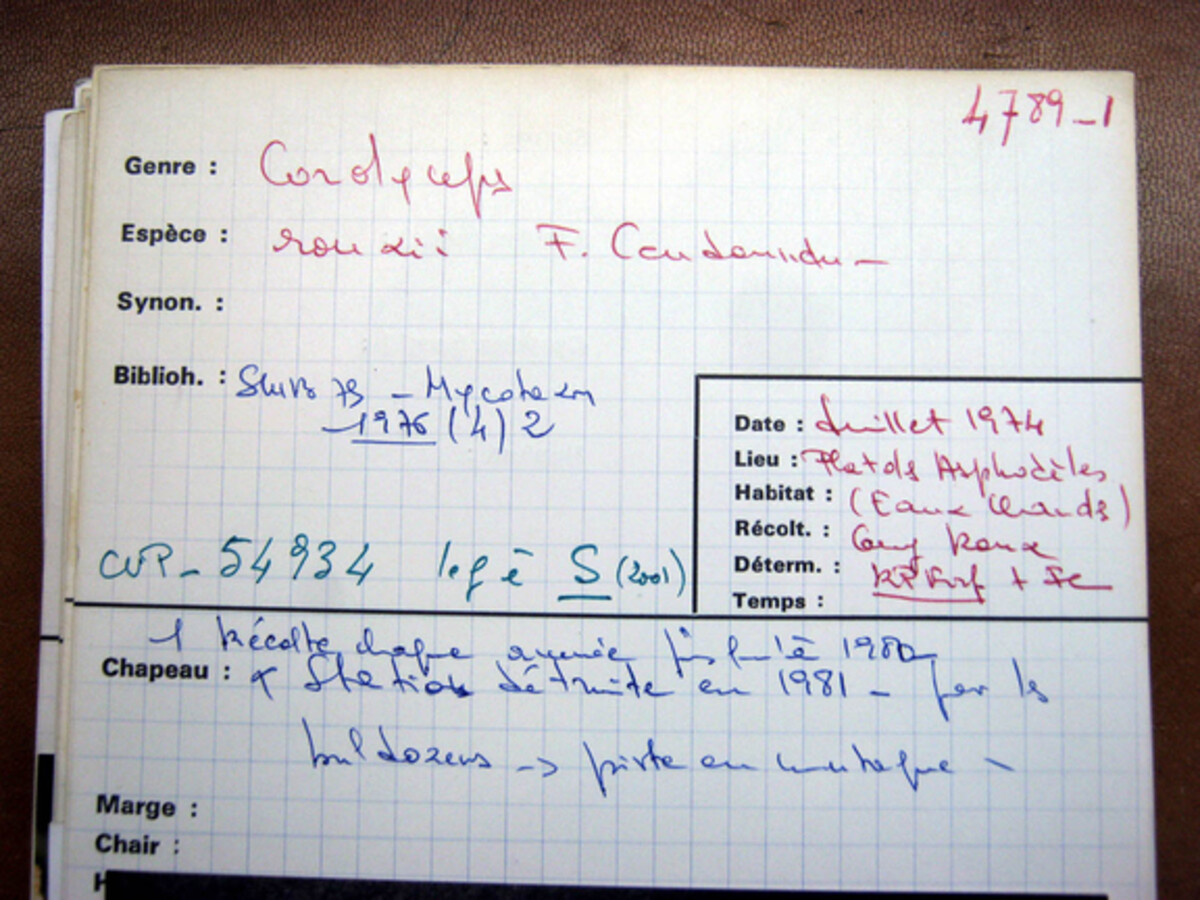 4789-1
Genre : Cordyceps
Espèce : rouxii F. Candoussau
Synon. :
Biblioh. : - Mycotaxon
1976 (4) 2
CUP-54934 leg à S (2001)
Date : Juillet 1974
Lieu : Plat des Asphodèles
Habitat : (Eaux Chaudes)
Récolt. : Roux
Déterm. : + FC
Temps :
1 Récolte chaque année jusqu'à 1980
Chapeau : Station détruite en 1981 - par les
buldozers -> piste en montagne -
Marge :
Chair :